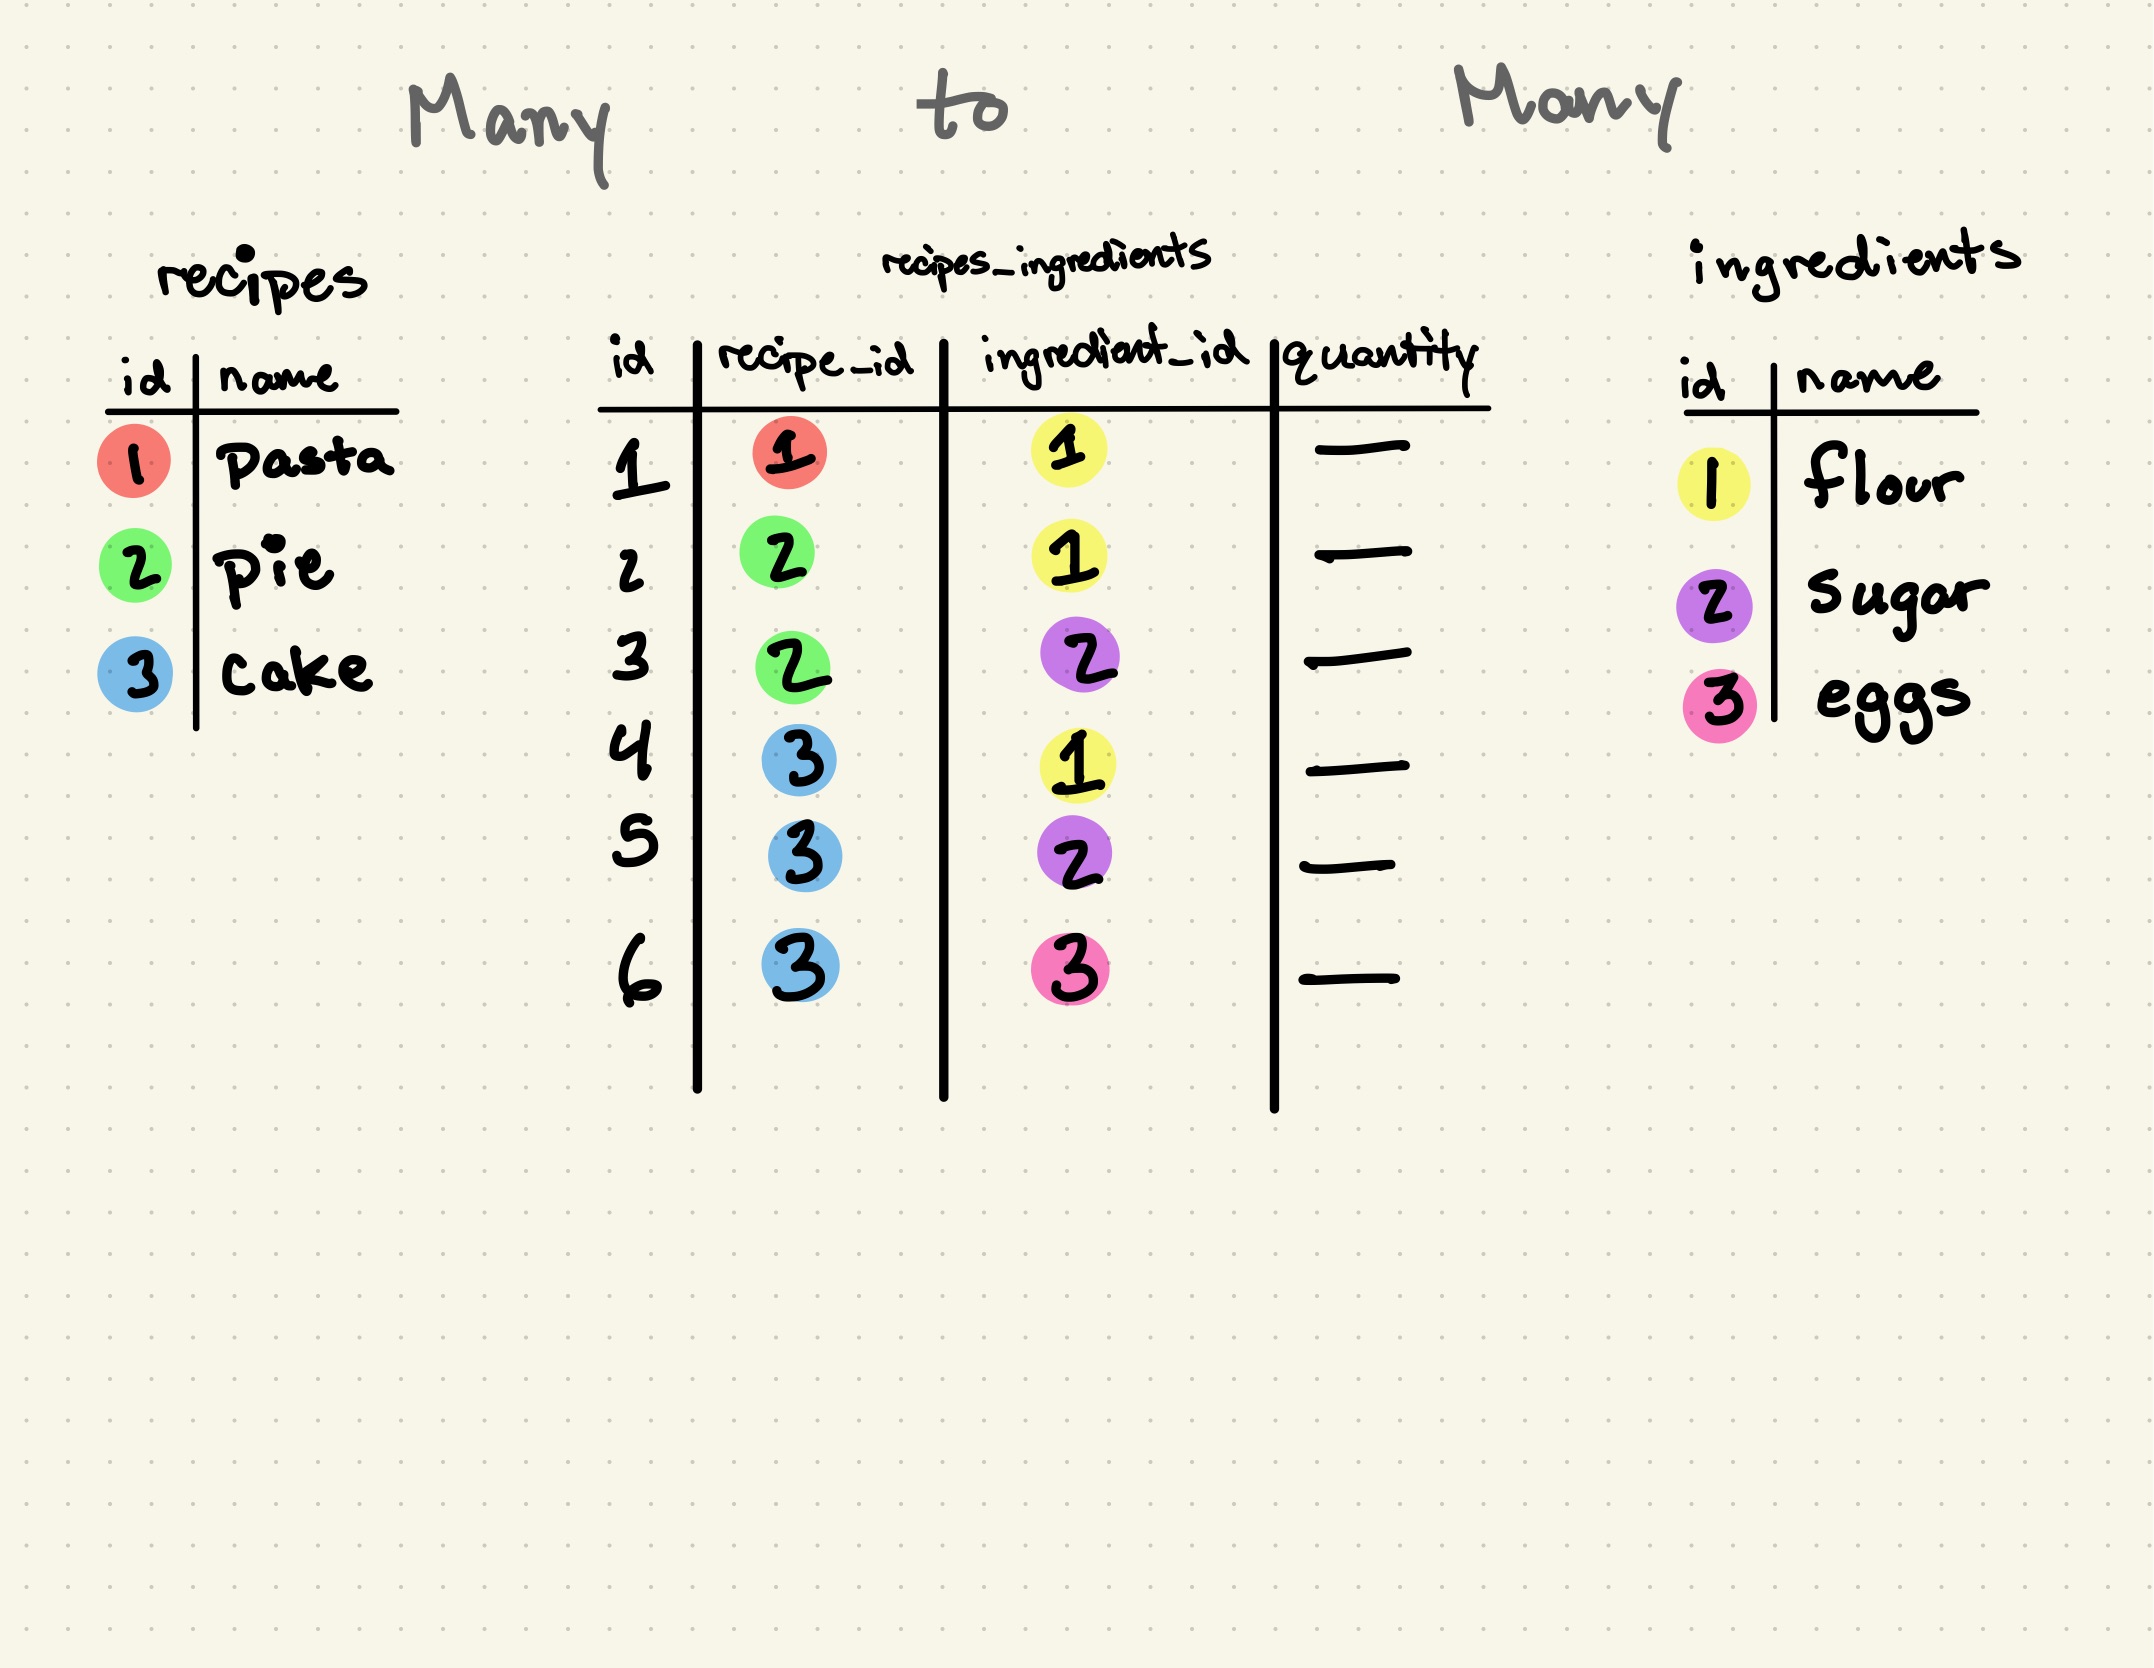 Many to Many
recipes
id name
1 pasta
2 pie
3 cake
recipes_ingredients
id recipe_id ingredient_id quantity
1 1 1 —
2 2 1 —
3 2 2 —
4 3 1 —
5 3 2 —
6 3 3 —
ingredients
id name
1 flour
2 sugar
3 eggs